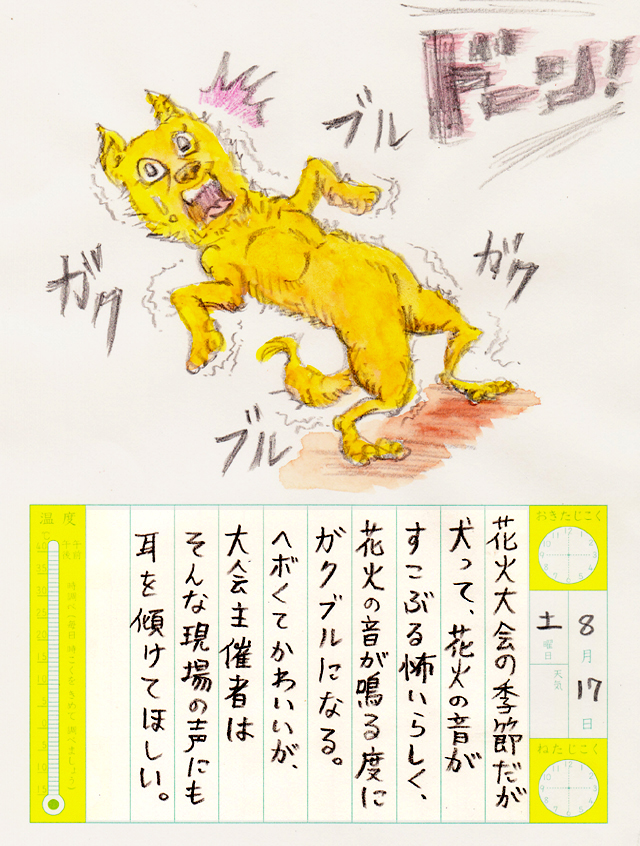 ドーン!
ブル
ガク
ガク
ブル
おきたじこく
8月17日
土曜日
天気
ねたじこく
花火大会の季節だが
犬って、花火の音が
すこぶる怖いらしく、
花火の音が鳴る度に
ガクブルになる。
ヘボくてかわいいが、
大会主催者は
そんな現場の声にも
耳を傾けてほしい。
温度
午前
午後
時調べ(毎日 時こくをきめて 調べましょう)